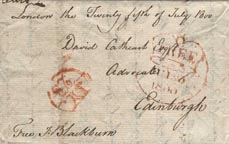 London the Twenty fifth of July 1800
David Cathcart Esqr
Advocate
Edinburgh
Free J Blackburn